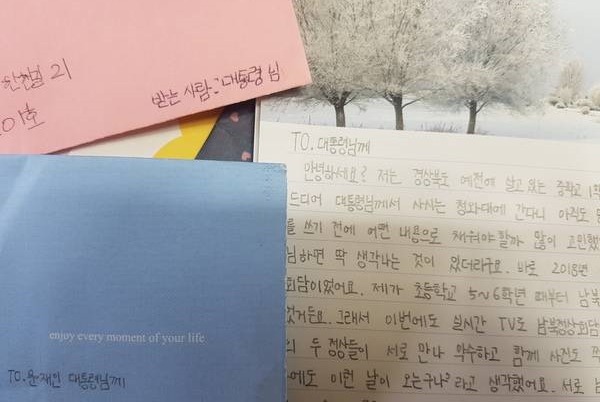 한천말 21
01호
받는 사람 : 대통령 님
TO. 대통령님께
안녕하세요? 저는 경상북도 예천에 살고 있는 중학교 1학
드디어 대통령님께서 사시는 청와대에 간다니 아직도 믿
를 쓰기 전에 어떤 내용으로 채워야할까 많이 고민했
님하면 딱 생각나는 것이 있더라구요. 바로 2018년
회담이었어요. 제가 초등학교 5~6학년 때부터 남북
있거든요. 그래서 이번에도 실시간 TV로 남북정상회담
의 두 정상들이 서로 만나 악수하고 함께 사진도 찍
에도 이런 날이 오는구나? 라고 생각했어요. 서로 남
enjoy every moment of your life
TO. 문재인 대통령님께